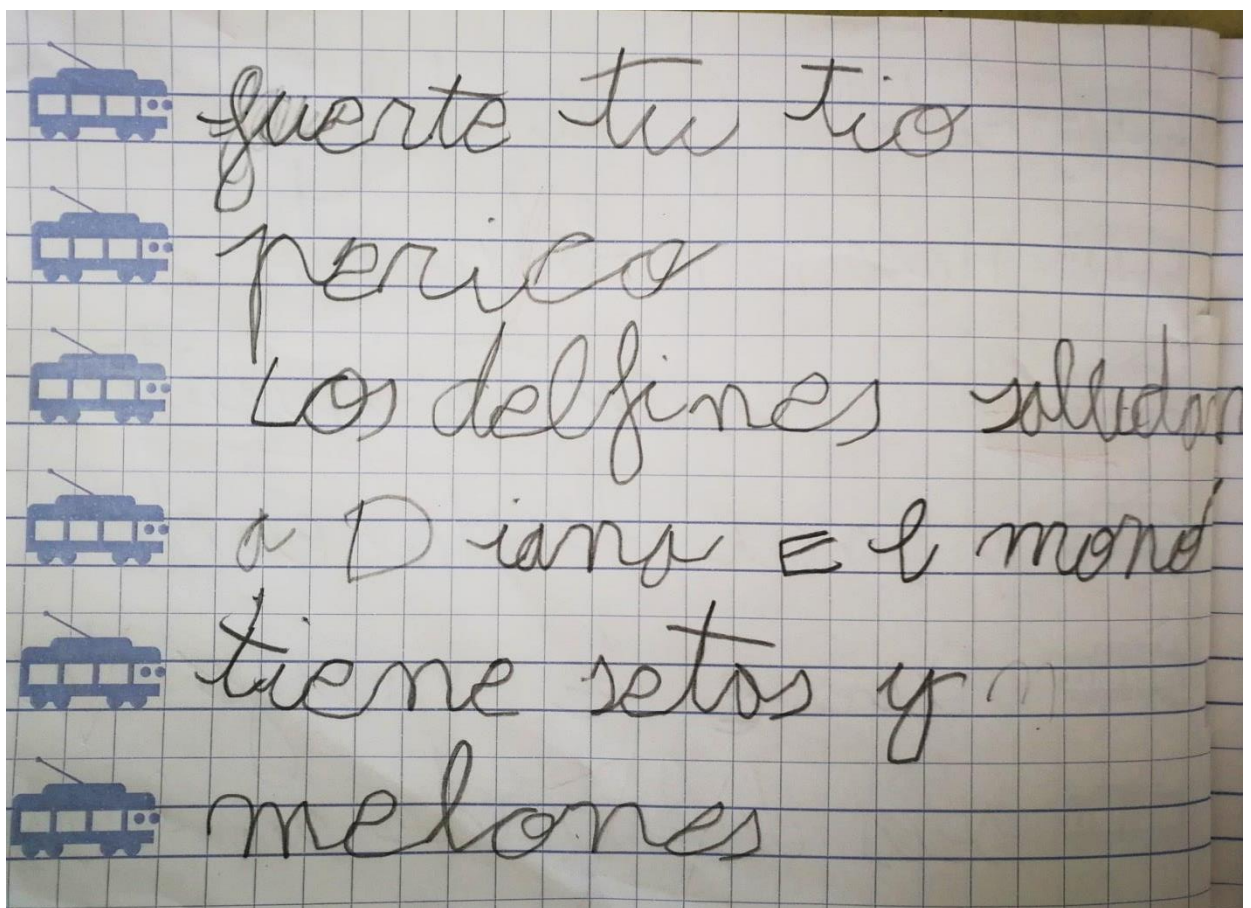 fuerte tu tio
perico
Los delfines salludan
a Diana El mono
tiene setas y
melones